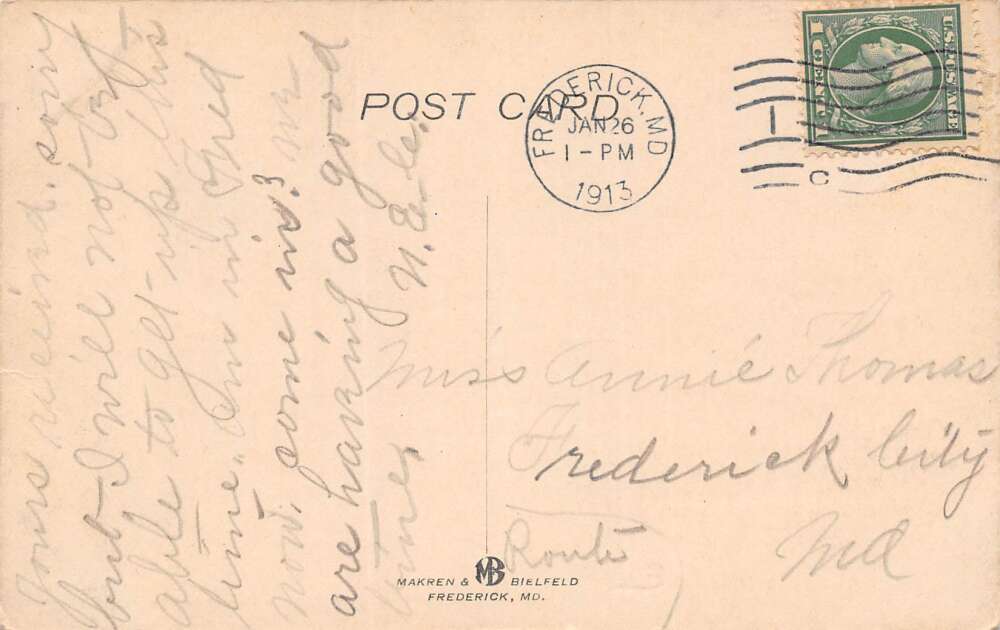 POST CARD.
FREDERICK, MD
JAN 26
1-PM
1913
1
C
U.S. POSTAGE
1 CENT 1
Yours received. sorry
but I will not be
able to get up this
time. Am in Fred
now, come in? we
are having a good
time,
N. E. Ce.
Miss Annie Thomas
Frederick City
Route
Md
MAKREN & MB BIELFELD
FREDERICK, MD.